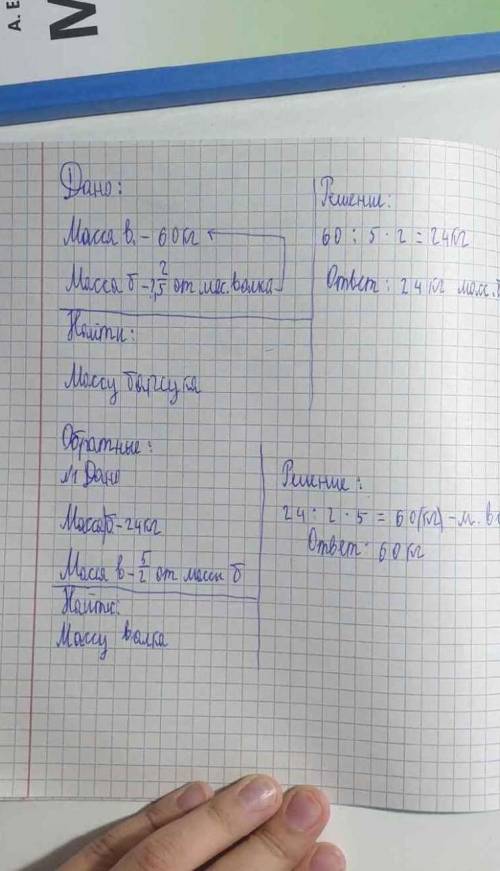 А. Е
М
Дано:
Масса в. - 60кг
Масса б - ? 2/5 от мас. волка
Найти:
Массу барсука
Решение:
60 : 5 · 2 = 24кг
Ответ: 24 кг масс.
Обратные:
№1 Дано
Масса б - 24кг
Масса в - 5/2 от массы б
Найти:
Массу волка
Решение:
24 : 2 · 5 = 60(кг) - м. в
Ответ: 60кг